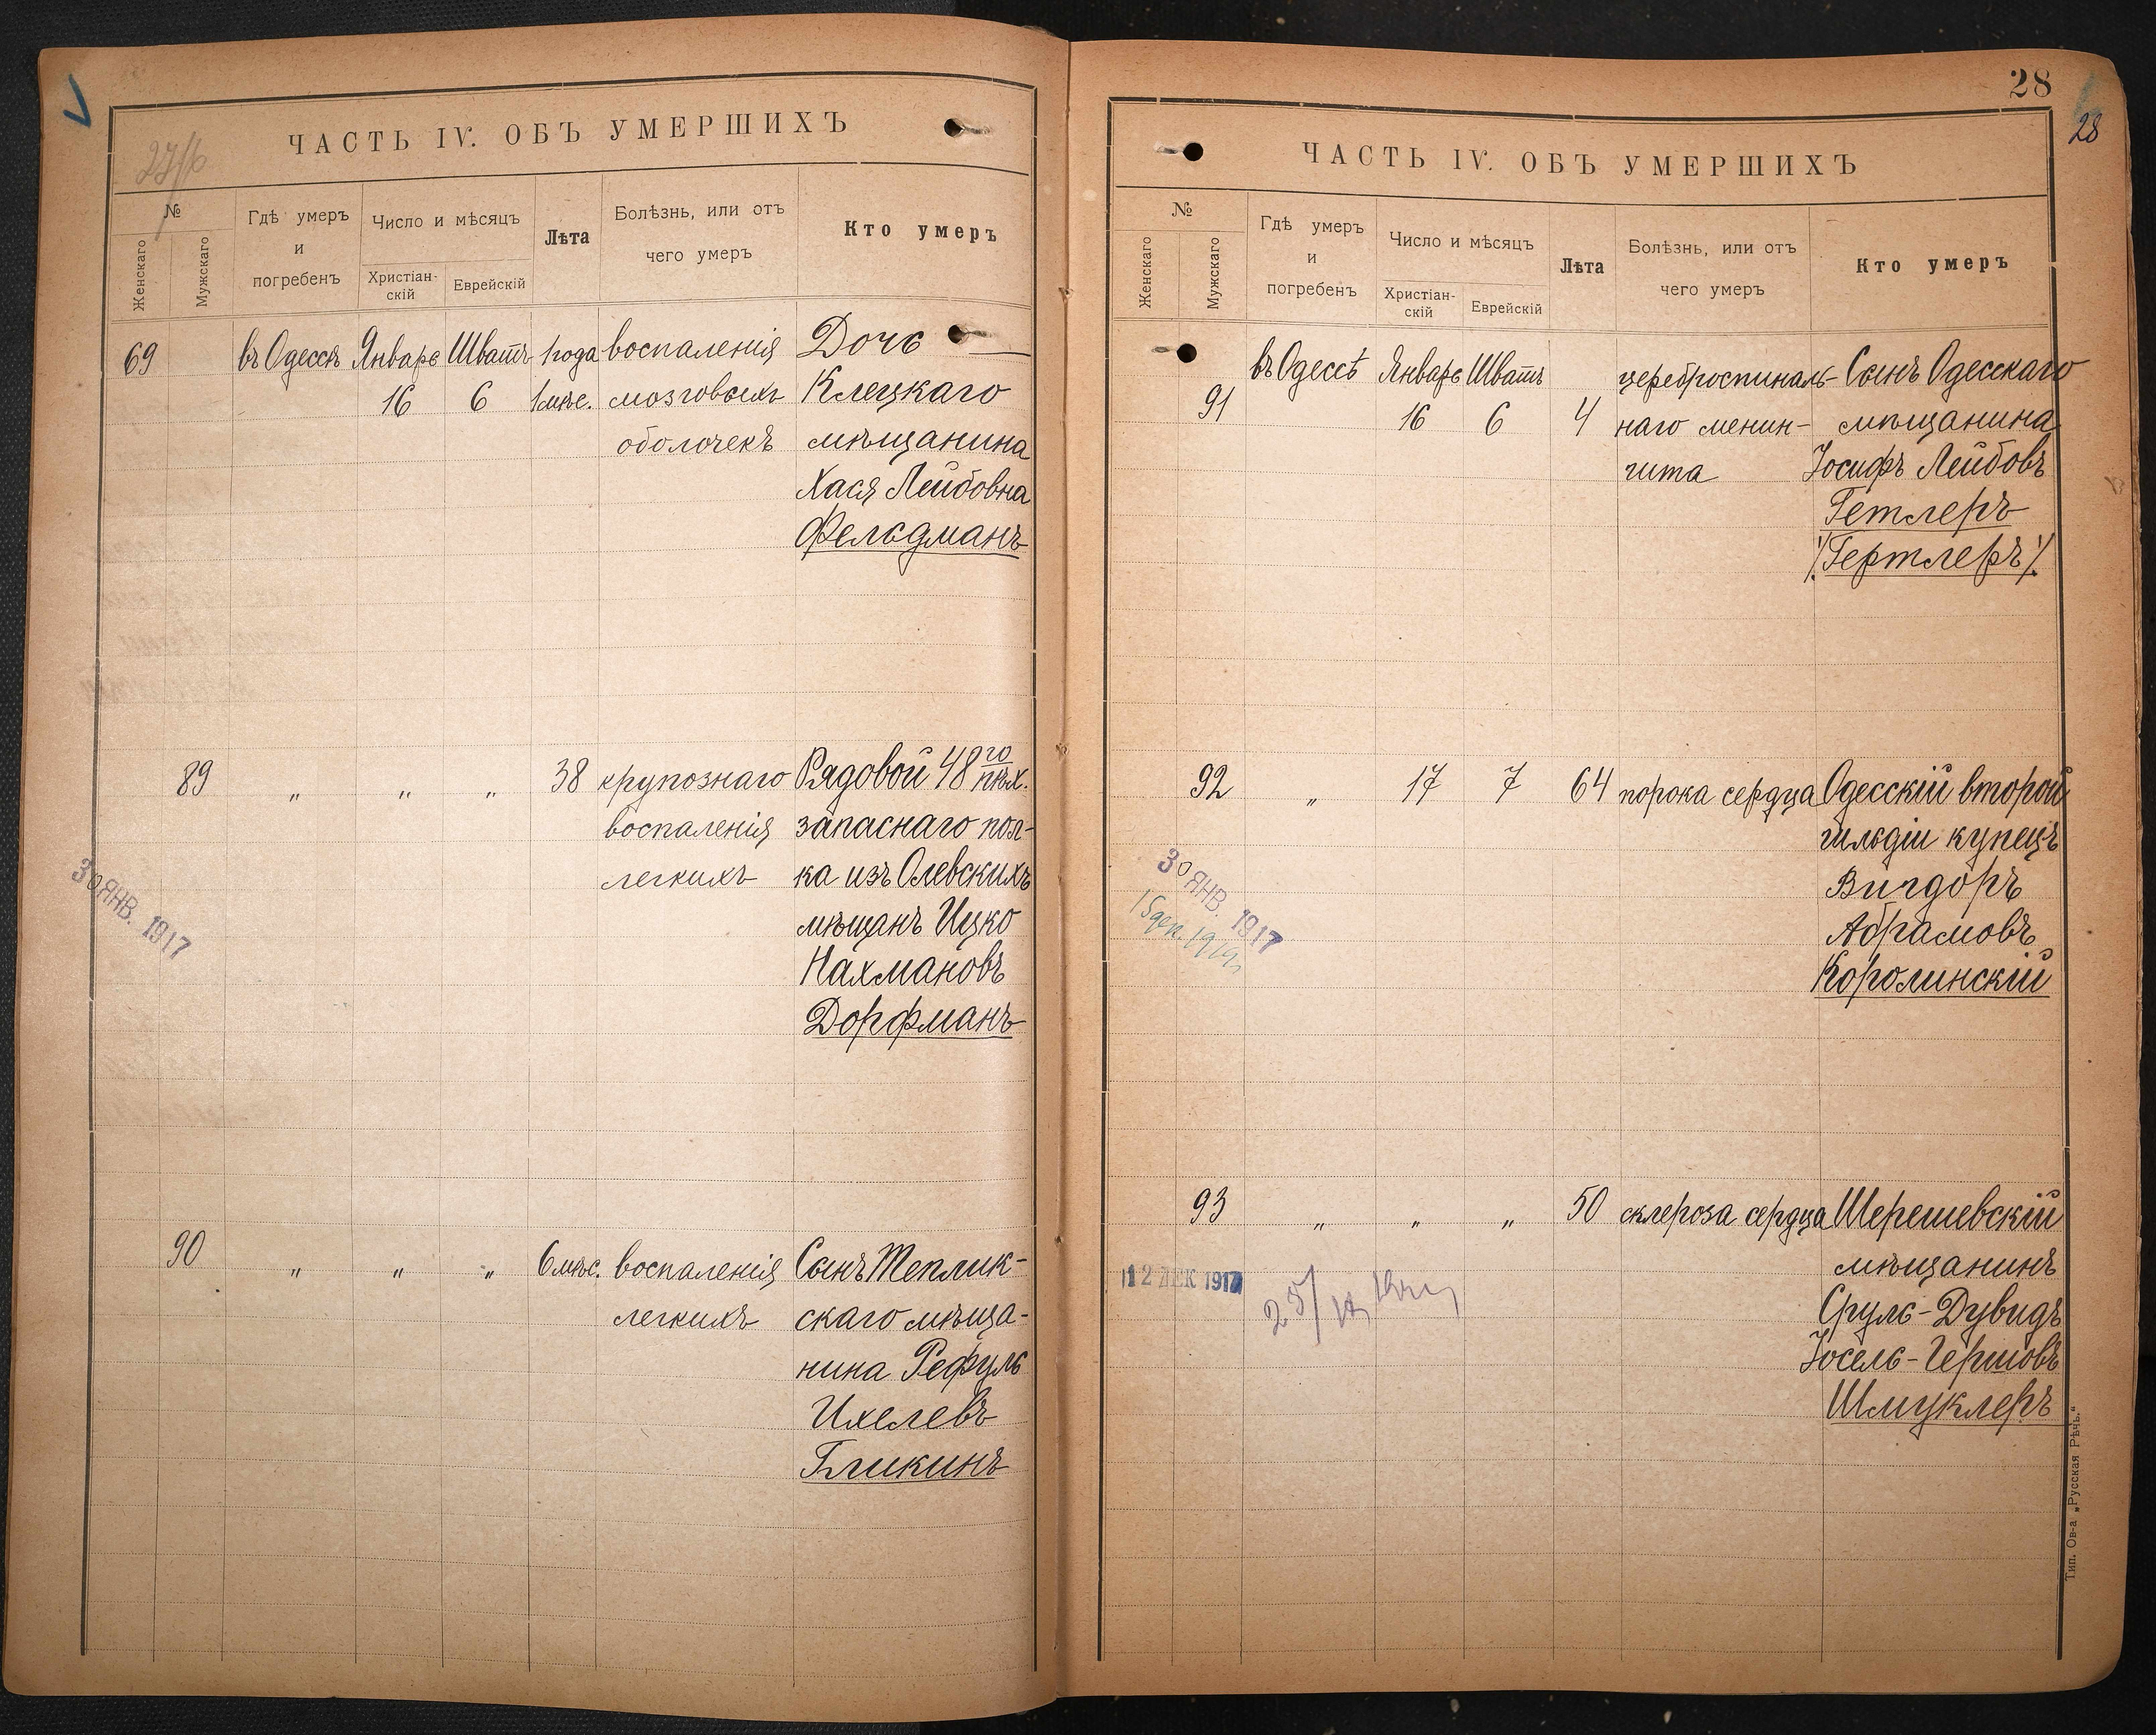 27/6
ЧАСТЬ IV. ОБЪ УМЕРШИХЪ
№
Женскаго
Мужскаго
Гдѣ умеръ
и
погребенъ
Число и мѣсяцъ
Христіан-
скій
Еврейскій
Лѣта
Болѣзнь, или отъ
чего умеръ
Кто умеръ
69 въ Одессѣ Январь Шватъ 1 года воспаленія Дочь
16 6 1 мѣс. мозговыхъ Клецкаго
оболочекъ мѣщанина
Хася Лейбовна
Фельдманъ
89 " " " 38 крупознаго Рядовой 48го пѣх.
воспаленія запаснаго пол-
легкихъ ка изъ Олевскихъ
30 ЯНВ. 1917
мѣщанъ Ицко
Нахмановъ
Дорфманъ
90 " " " 6 мѣс. воспаленія Сынъ Теплик-
легкихъ скаго мѣща-
нина Рефуль
Ихелевъ
Гликинъ
28
28
ЧАСТЬ IV. ОБЪ УМЕРШИХЪ
№
Женскаго
Мужскаго
Гдѣ умеръ
и
погребенъ
Число и мѣсяцъ
Христіан-
скій
Еврейскій
Лѣта
Болѣзнь, или отъ
чего умеръ
Кто умеръ
въ Одессѣ Январь Шватъ цереброспиналь- Сынъ Одесскаго
91 16 6 4 наго менин- мѣщанина
гита Іосифъ Лейбовъ
Гетлеръ
/Гертлеръ/
92 " 17 7 64 порока сердца Одесскій второй
гильдіи купецъ
30 ЯНВ. 1917
Вигдоръ
Абрамовъ
Королинскій
93 " " " 50 склероза сердца Шерешевскій
12 ДЕК 1917
мѣщанинъ
Сруль-Дувидъ
Іосель-Гершовъ
Шмуклеръ
Тип. Ов-а „Русская Рѣчь."